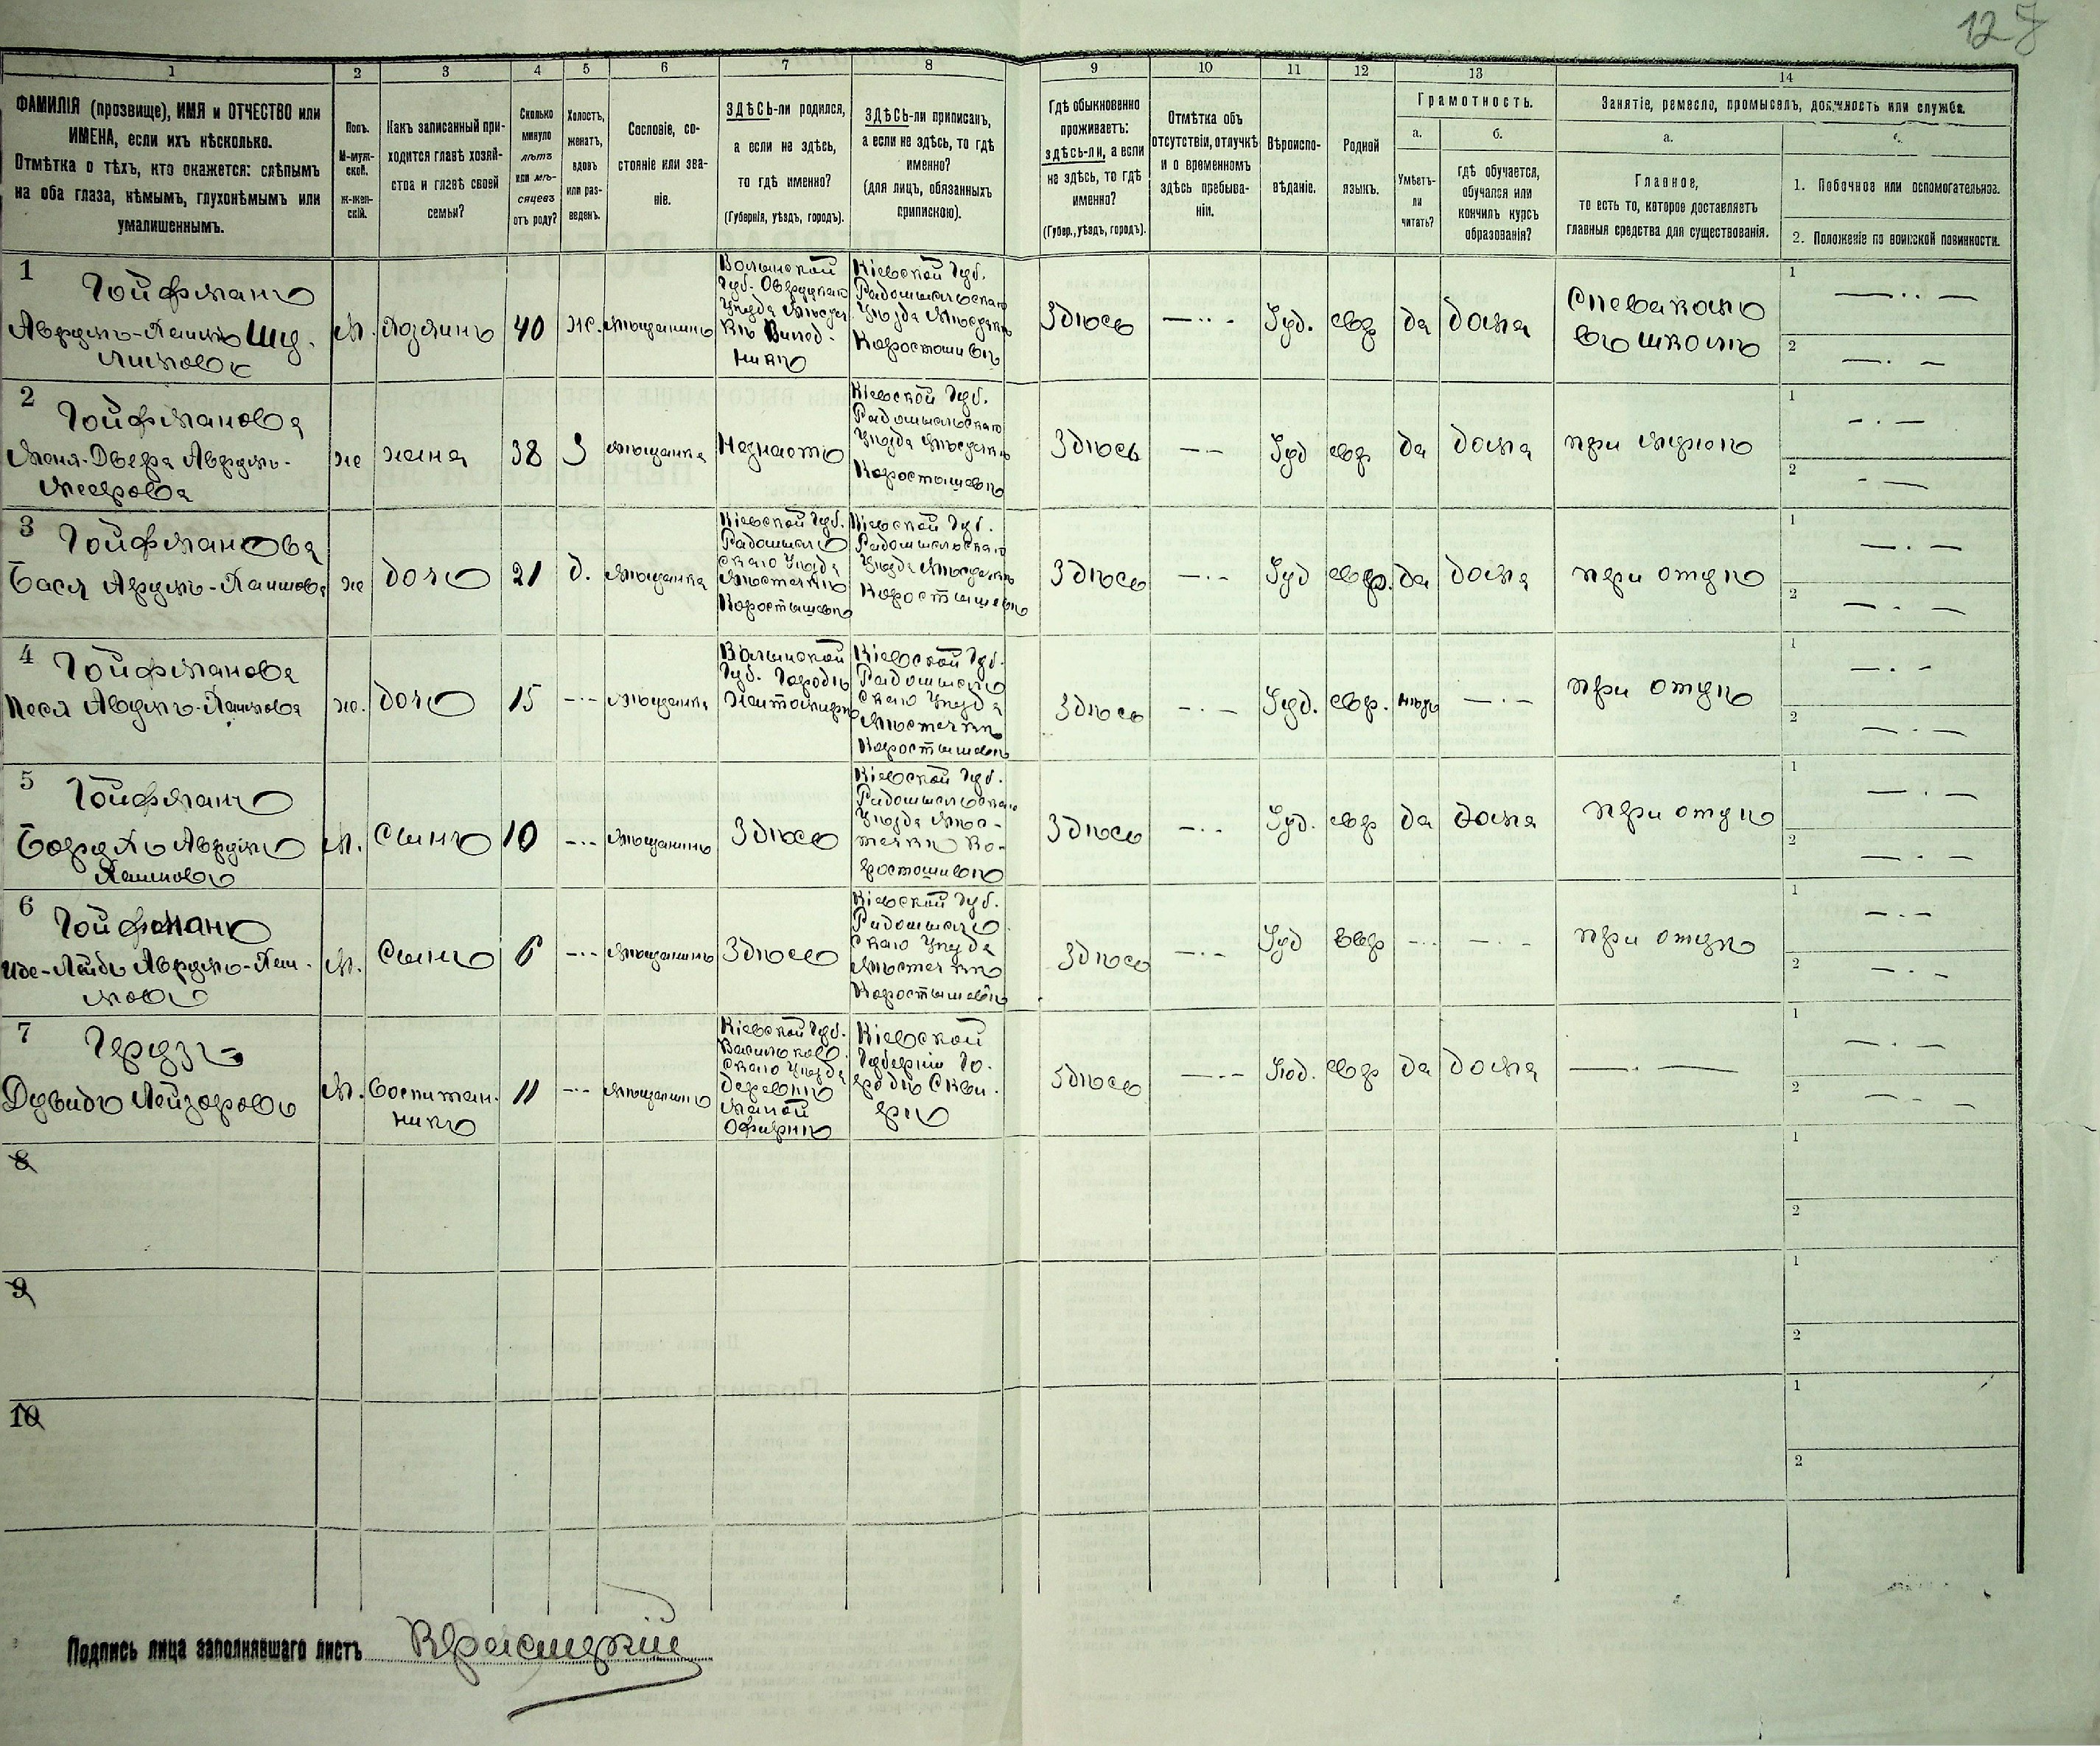 127
1
2
3
4
5
6
7
8
9
10
11
12
13
14
ФАМИЛІЯ (прозвище), ИМЯ и ОТЧЕСТВО или
ИМЕНА, если ихъ нѣсколько.
Отмѣтка о тѣхъ, кто окажется: слѣпымъ
на оба глаза, нѣмымъ, глухонѣмымъ или
умалишеннымъ.
Полъ.
М-муж-
ской.
ж-жен-
скій.
Какъ записанный при-
ходится главѣ хозяй-
ства и главѣ своей
семьи?
Сколько
минуло
лѣтъ
или мѣ-
сяцевъ
отъ роду?
Холостъ,
женатъ,
вдовъ
или раз-
веденъ.
Сословіе, со-
стояніе или зва-
ніе.
ЗДѢСЬ-ли родился,
а если не здѣсь,
то гдѣ именно?
(Губернія, уѣздъ, городъ).
ЗДѢСЬ-ли приписанъ,
а если не здѣсь, то гдѣ
именно?
(для лицъ, обязанныхъ
припискою).
Гдѣ обыкновенно
проживаетъ:
здѣсь-ли, а если
не здѣсь, то гдѣ
именно?
(Губер., уѣздъ, городъ).
Отмѣтка объ
отсутствіи, отлучкѣ
и о временномъ
здѣсь пребыва-
ніи.
Вѣроиспо-
вѣданіе.
Родной
языкъ.
Грамотность.
а.
б.
Умѣетъ-
ли
читать?
гдѣ обучается,
обучался или
кончилъ курсъ
образованія?
Занятіе, ремесло, промыселъ, должность или служба.
а.
Главное,
то есть то, которое доставляетъ
главныя средства для существованія.
1. Побочное или вспомогательное.
2. Положеніе по воинской повинности.
1
Гойфманъ
Аврумъ-Хаимъ Шу-
лимовъ
М. Хозяинъ 40 ж. мѣщанинъ
Волынской
Губ. Овруцкаго
Уѣзда
Кіевской Губ.
Радомысльскаго
Уѣзда Мѣстечкѣ
Коростышевѣ
Здѣсь Іуд. евр да дома
Спевакомъ
въ школѣ
1
2
2
Гойфманова
Меня-Двера Аврумъ-
Меерова
же жена 38 З мѣщанка Незнаетъ
Кіевской Губ.
Радомысльскаго
Уѣзда Мѣстечкѣ
Коростышевѣ
Здѣсь Іуд евр да дома при мужѣ
1
2
3
Гойфманова
Бася Арумъ-Хаимова
же дочь 21 д. мѣщанка
Кіевской Губ.
Радомысль
скаго Уѣзда
Мѣстечкѣ
Коростышевѣ
Кіевской Губ.
Радомысльскаго
Уѣзда Мѣстечкѣ
Коростышевѣ
Здѣсь Іуд евр. да дома при отцѣ
1
2
4
Гойфманова
Песя Аврумъ-Хаимова
же. дочь 15 мѣщанка
Волынской
Губ. Городѣ
Житомирѣ
Кіевской Губ.
Радомысль
скаго Уѣзда
Мѣстечкѣ
Коростышевѣ
Здѣсь Іуд. евр. нѣтъ при отцѣ
1
2
5
Гойфманъ
Борухъ Аврумъ
Хаимовъ
М. Сынъ 10 мѣщанинъ Здѣсь
Кіевской Губ.
Радомысльскаго
Уѣзда Мѣс-
течкѣ Ко-
ростышевѣ
Здѣсь Іуд. евр да дома при отцѣ
1
2
6
Гойфманъ
Иде-Лейбъ Аврумъ-Хаи-
мовъ
М. Сынъ 6 мѣщанинъ Здѣсь
Кіевской Губ.
Радомысль
скаго Уѣзда
Мѣстечкѣ
Коростышевѣ
Здѣсь Іуд Евр при отцѣ
1
2
7
Дувидъ Лейзоровъ
М. Воспитан-
никъ
11 мѣщанинъ
Кіевской Губ.
Васильков
скаго Уѣзда
деревнѣ
Малой
Офирнѣ
Кіевской
Губерніи Го-
родѣ Сквы-
рѣ
Здѣсь Іюд. евр да дома
1
2
8
1
2
9
1
2
10
1
2
Подпись лица заполнявшаго листъ